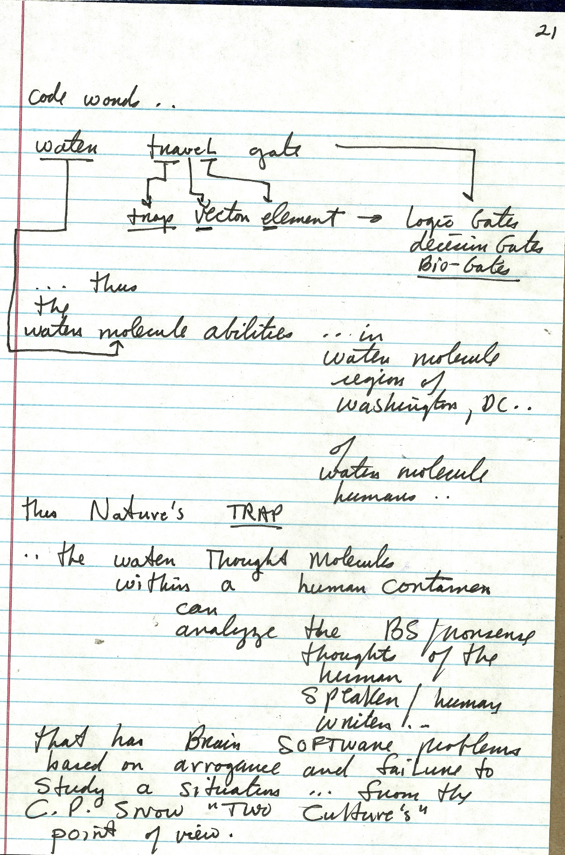 21
code words ..
water travel gate
trap vector element → Logic Gates
decision Gates
Bio-Gates
... thus
the
water molecule abilities ... in
water molecule
region of
Washington, DC..
of
water molecule
humans ..
thus Nature's TRAP
.. the water Thought Molecules
within a human container
can
analyze the BS/nonsense
thoughts of the
human
speaker/human
writer ...
that has Brain SOFTware problems
based on arrogance and failure to
study a situation ... from the
C.P. Snow "Two Culture's"
point of view.